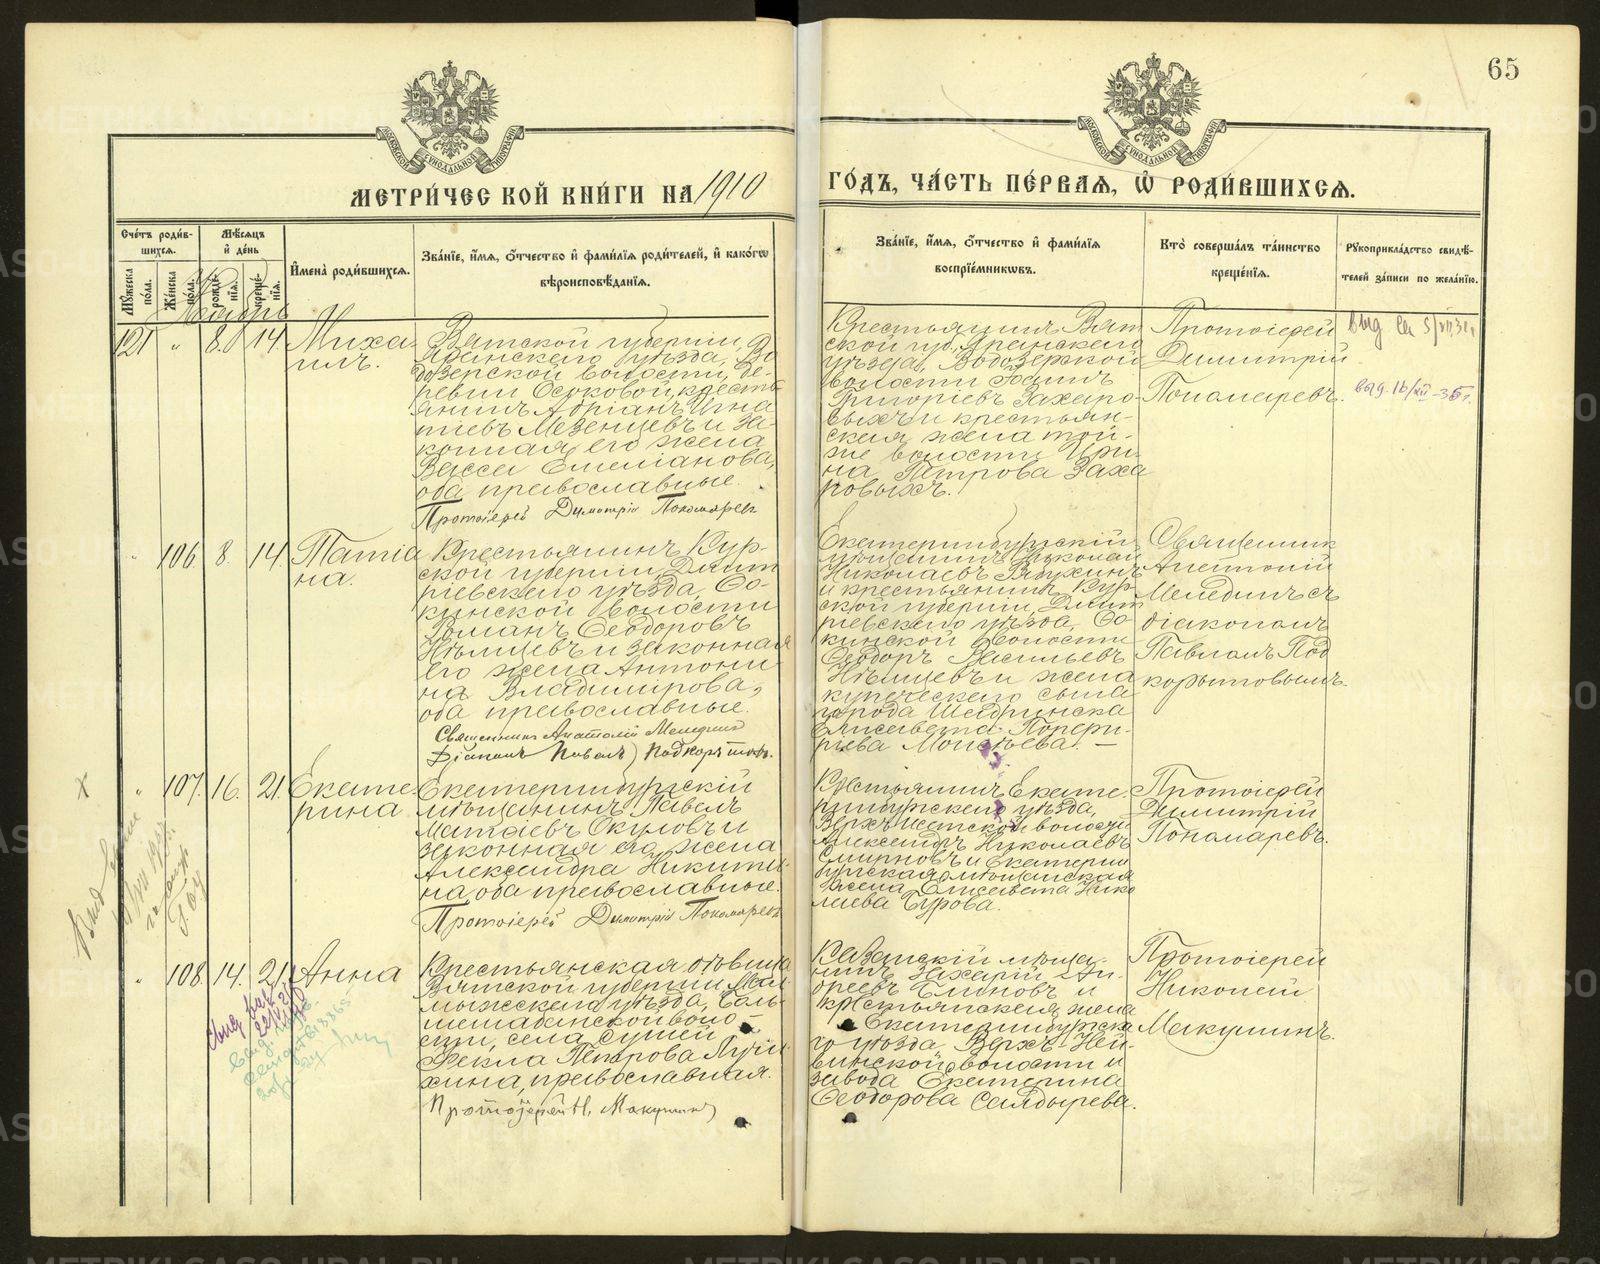 65
МЕТРИЧЕСКОЙ КНИГИ НА 1910
ГОДЪ, ЧАСТЬ ПЕРВАЯ, Ѡ РОДИВШИХСЯ.
Счетъ родив-
шихся.
Мѣсяцъ
и день
Имена родившихся.
Званіе, имя, отчество и фамилія родителей, и какого
вѣроисповѣданія.
Мужеска
пола.
Женска
пола.
рожде-
нія.
креще-
нія.
Ноябрь
Званіе, имя, отчество и фамилія
воспріемниковъ.
Кто совершалъ таинство
крещенія.
Рукоприкладство свидѣ-
телей записи по желанію.
121 " 8. 14. Миха-
илъ.
Вятской губерніи, Я
ранскаго уѣзда, Во
дозерской волости, де-
ревни Осоковой, кресть
янинъ Адріанъ Игна
тіевъ Мезенцевъ и за-
конная его жена
Васса Емеліанова,
оба православные.
Протоіерей Димитрій Пономарев
Крестьянинъ Вят
ской губ., Яранскаго
уѣзда, Водозерской
волости
Григоріевъ Захаро-
выхъ и крестьян-
ская жена той-
же волости Ири-
на Петрова Заха
ровыхъ.
Протоіерей
Димитрій
Пономаревъ.
выд. 16/XII-35г.
" 106. 8. 14. Татіа
на.
Крестьянинъ Кур-
ской губерніи, Дмит
ріевскаго уѣзда, Фо-
кинской волости
Романъ Ѳеодоровъ
Нѣмцевъ и законная
его жена Антони
на Владимірова,
оба православные.
Священникъ Анатолій Меледин
Діаконъ Павелъ Подкорытовъ.
Екатеринбургскій
мѣщанинъ Николай
Николаевъ Вяткинъ
и крестьянинъ Кур
ской губерніи, Дмит
ріевскаго уѣзда, Фо
кинской волости
Ѳеодоръ Васильевъ
Нѣмцевъ и жена
купеческаго сына
города Шадринска
Елисавета Порфи-
ріева Мокѣева. —
Священник
Анатолій
Мелединъ съ
діакономъ
Павломъ Под
корытовымъ.
" 107. 16. 21. Екате-
рина.
Екатеринбургскій
мѣщанинъ Павелъ
Матѳіевъ Окуловъ и
законная его жена
Александра Никити-
на, оба православные.
Протоіерей Димитрій Пономарев
Крестьянинъ Екате-
ринбургскаго уѣзда,
Верхъ-Исетской волости
Александръ Николаевъ
Смирновъ и Екатерин
бургская мѣщанская
жена Елисавета Нико
лаева Бурова.
Протоіерей
Димитрій
Пономаревъ.
" 108. 14. 21. Анна
Крестьянская дѣвица
Вятской губерніи Мал
мыжскаго уѣзда, Боль-
шешабанской воло-
сти, села Сушей
Ѳекла Петрова Лучи-
хина, православная.
Протоіерей Н. Макушин
Казанскій мѣща-
нинъ Захарій Ан-
дреевъ Блиновъ и
крестьянская жена
Екатеринбургска
го уѣзда Верхъ-Ней
винской волости и
завода Екатерина
Ѳеодорова Сандырева.
Протоіерей
Николай
Макушинъ.